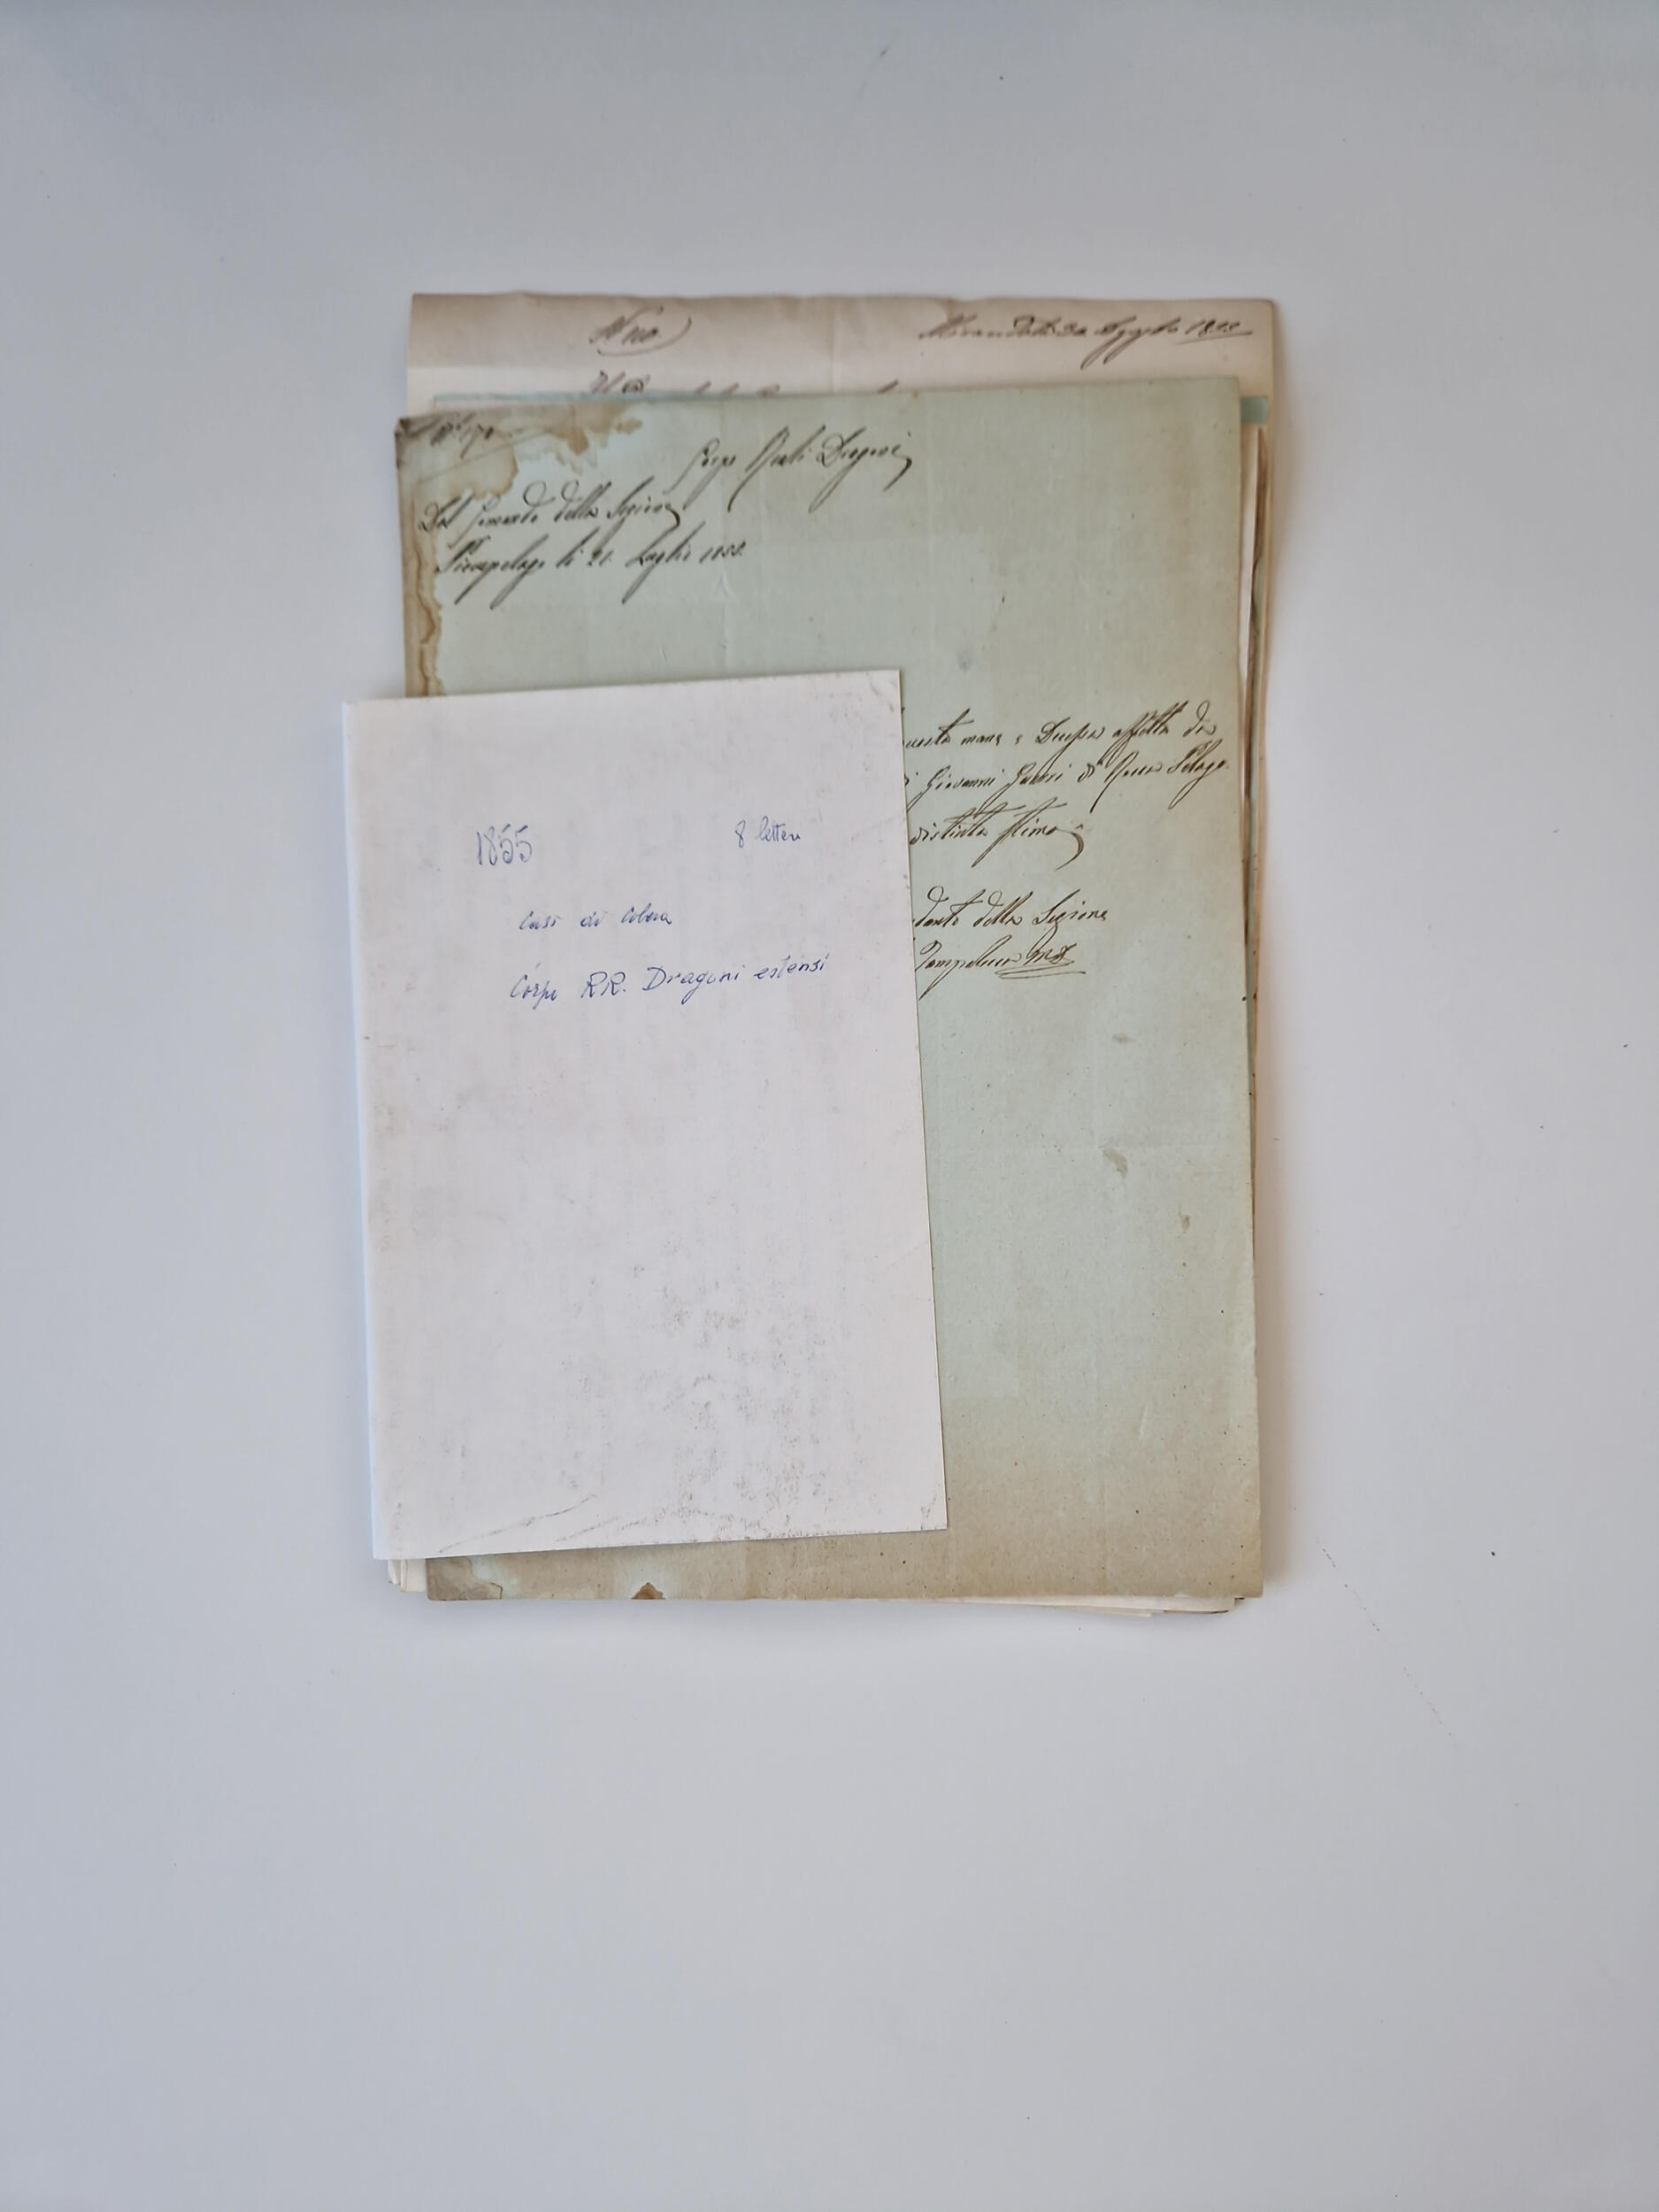 Mirandola 30 Agosto 1855
Corpo Reali Dragoni
Dal Comando della Sezione
Pievepelago li 21. Luglio 1855.
questa mane è Decessa affetta da
di Giovanni Guerri di Rocca Pelago.
distinta stima
dante della Sezione
1855
8 lettere
Casi di Colera
Corpo RR. Dragoni estensi